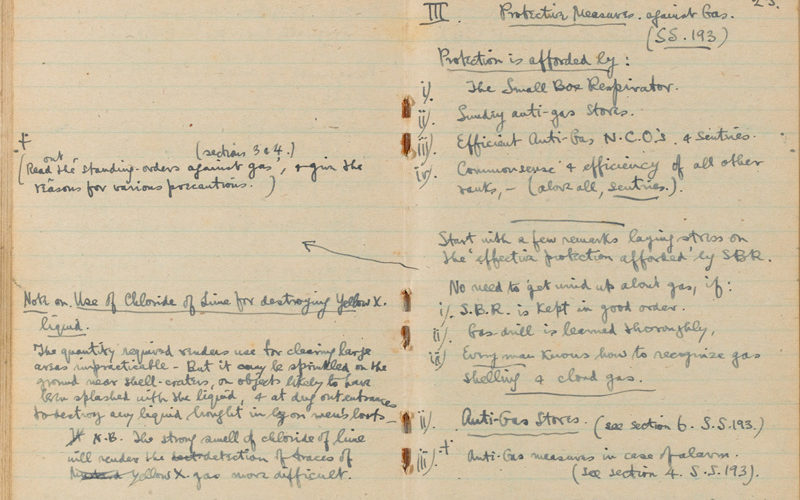 +
(Read out the 'standing-orders against gas', (sections 3 & 4.) & give the
reasons for various precautions. )
Note on Use of Chloride of Lime for destroying Yellow X.
liquid.
The quantity required renders use for clearing large
areas unpracticable - But it may be sprinkled on the
ground near shell-craters, on objects likely to have
been splashed with the liquid, & at dug out entrances
to destroy any liquid brought in by on men's boots -
N.B. The strong smell of chloride of lime
will render the detection of traces of
Yellow X gas more difficult.
23.
III. Protective Measures against Gas.
(S.S. 193)
Protection is afforded by:
i). The Small Box Respirator.
ii). Sundry anti-gas stores.
iii). Efficient Anti-Gas N.C.O's & sentries.
iv). Commonsense & efficiency of all other
ranks, - (above all, sentries.).
Start with a few remarks laying stress on
the 'effective protection afforded' by SBR.
No need to get wind up about gas, if:
i). S.B.R. is kept in good order.
ii). Gas-drill is learned thoroughly,
iii). Every man knows how to recognize gas
shelling & cloud gas.
ii). Anti-Gas Stores. (see section 6. S.S.193.)
iii). + Anti-Gas measures in case of alarm.
(see section 4. S.S. 193).